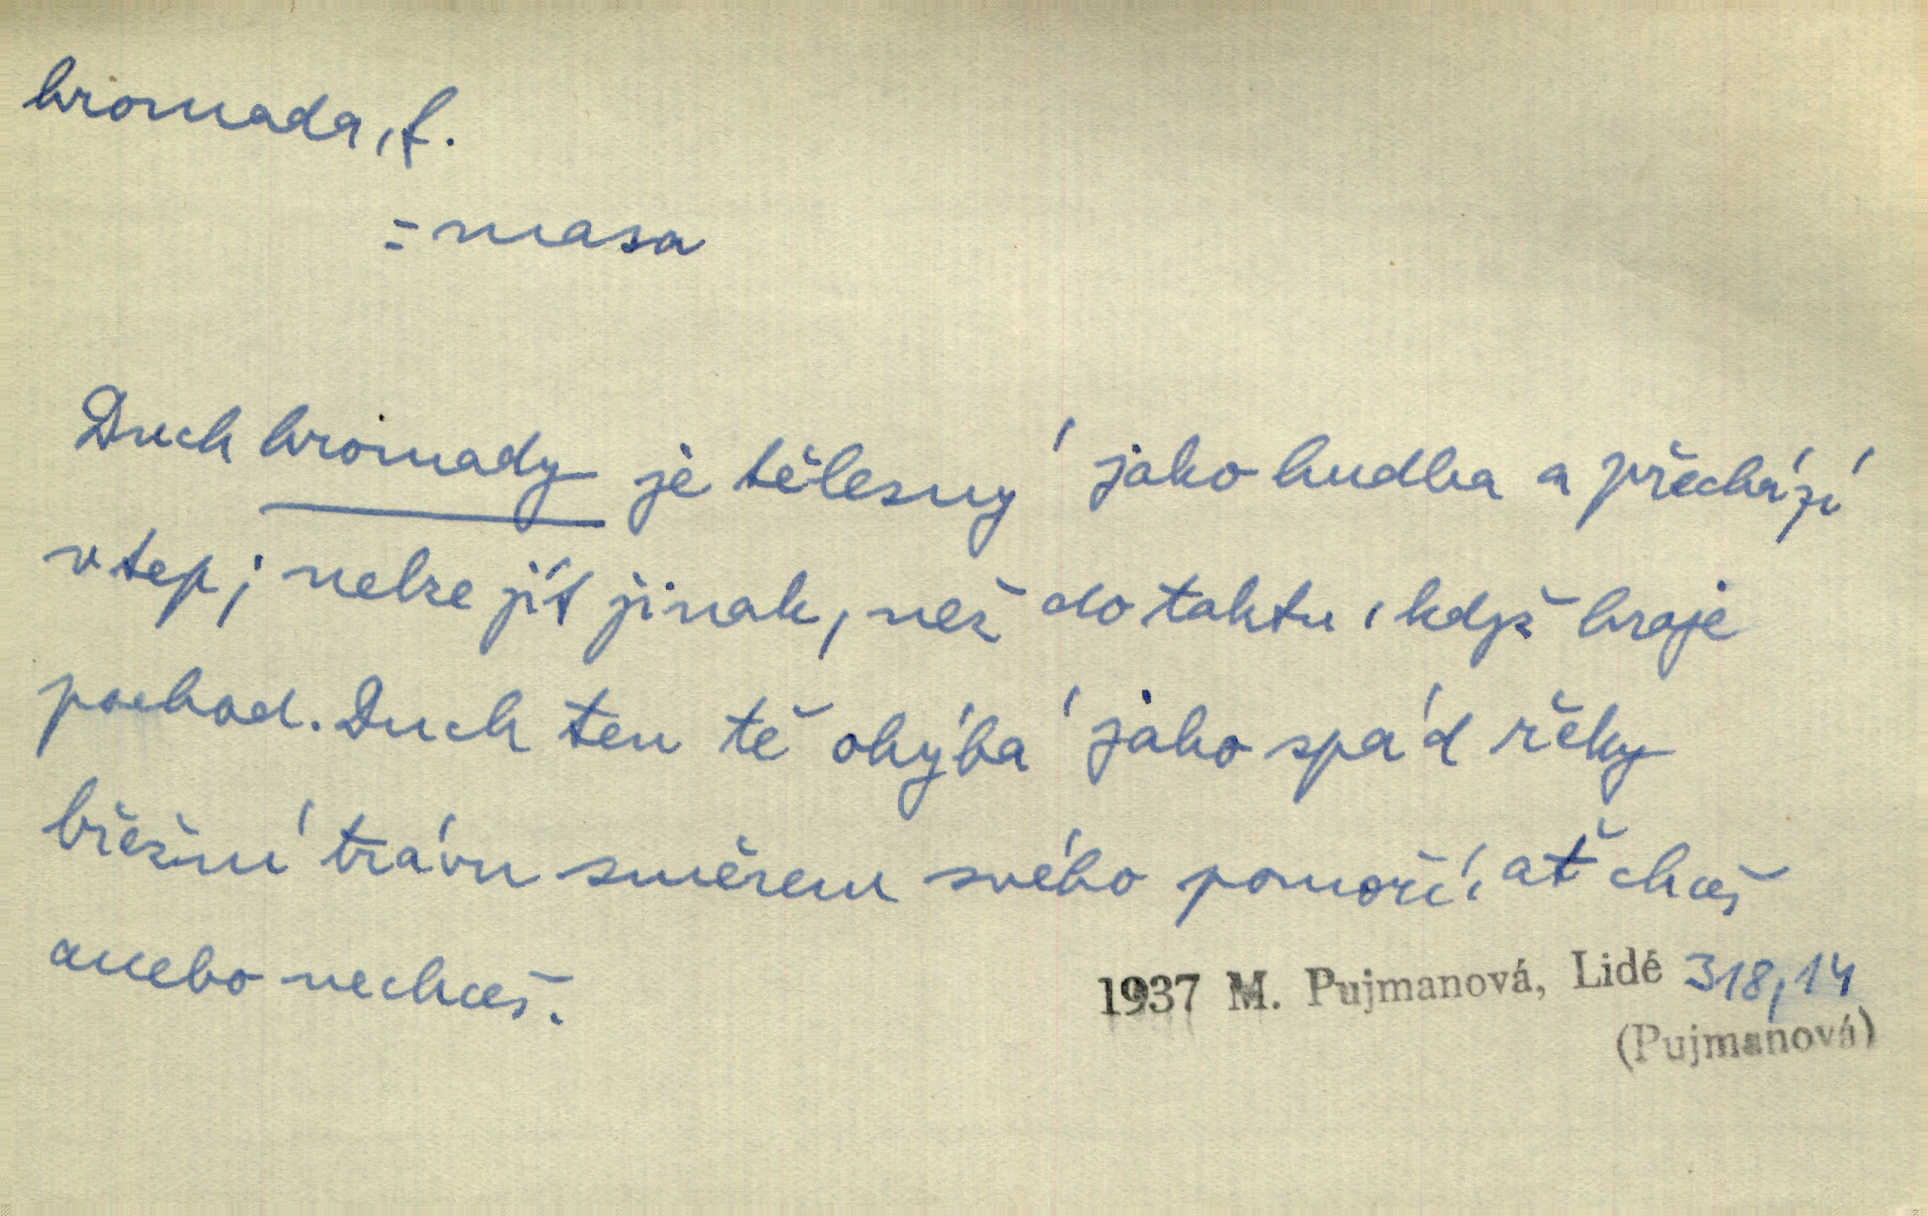 hromada, f.
= masa
Duch hromady je tělesný jako hudba a přechází
v tep; nelze jít jinak, než do taktu, když hraje
pochod. Duch ten tě ohýbá jako spád řeky
břežní trávu směrem svého pomoří, ať chceš
anebo nechceš.
1937 M. Pujmanová, Lidé 318,14
(Pujmanová)